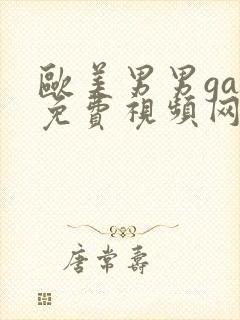 歐美男男ga
免費視頻网
唐常壽